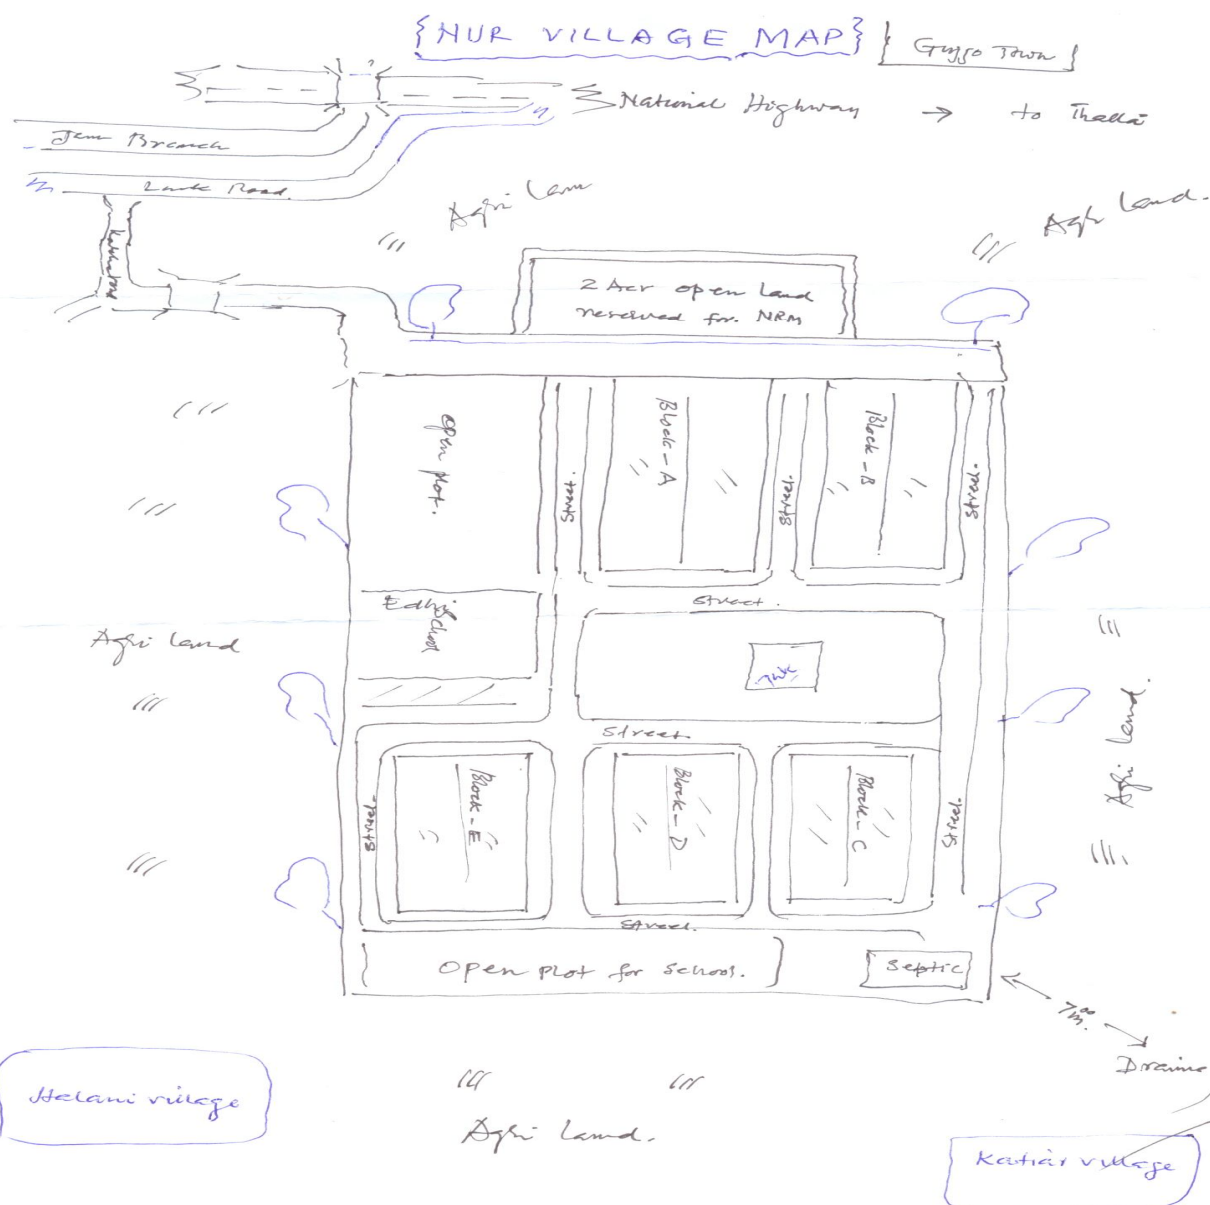 {NUR VILLAGE MAP}
Gujjo Town
National Highway → to Thatta
Jam Branch
Link Road
Agri Lan
Agri Land.
2 Acr open Land
reserved for NRM
Open Plot.
Street.
Block - A
Street.
Block - B
Street.
Edhi School
Street.
Agri Land
Street.
Agri Land.
Street.
Block - E
Block - D
Block - C
Street.
Street.
Open Plot for School.
Septic
Halani village
Agri Land.
Katiar village